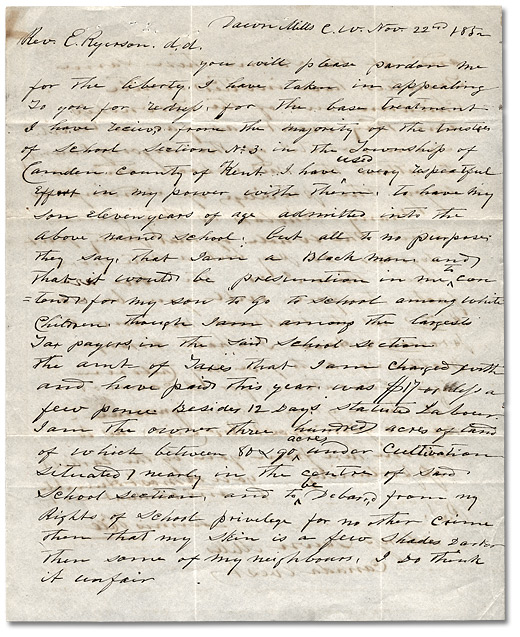 Dawn Mills C.W. Nov. 22nd 1852
Rev. E. Ryerson. d.d.
you will please pardon me
for the liberty I have taken in appealing
to you for redress for the base treatment
I have recived from the majority of the trustees
of School Section No. 3 in the Township of
Camden County of Kent. I have used every respectful
Effort in my power with them. to have my
son Eleven years of age admitted into the
above named School: but all to no purpose:
they say, that I am a Black man and
that it would be presumtion in me to con
=tend for my son to go to School among White
Children though I am among the largests
Tax payers, in the Said School Section
the amt of Taxes that I am Charged with
and have paid this year was $17 or less a
few pence Besides 12 Days Statute Labour
I am the owner three hundred acres of land
of which between 80 & 90 acres under Cultivation
Situated nearly in the centre of Said
School Section, and to be Debared from my
Rights of School privilege for no other Crime
then that my Skin is a few Shades Darker
then some of my neighbours, I Do think
it unfair